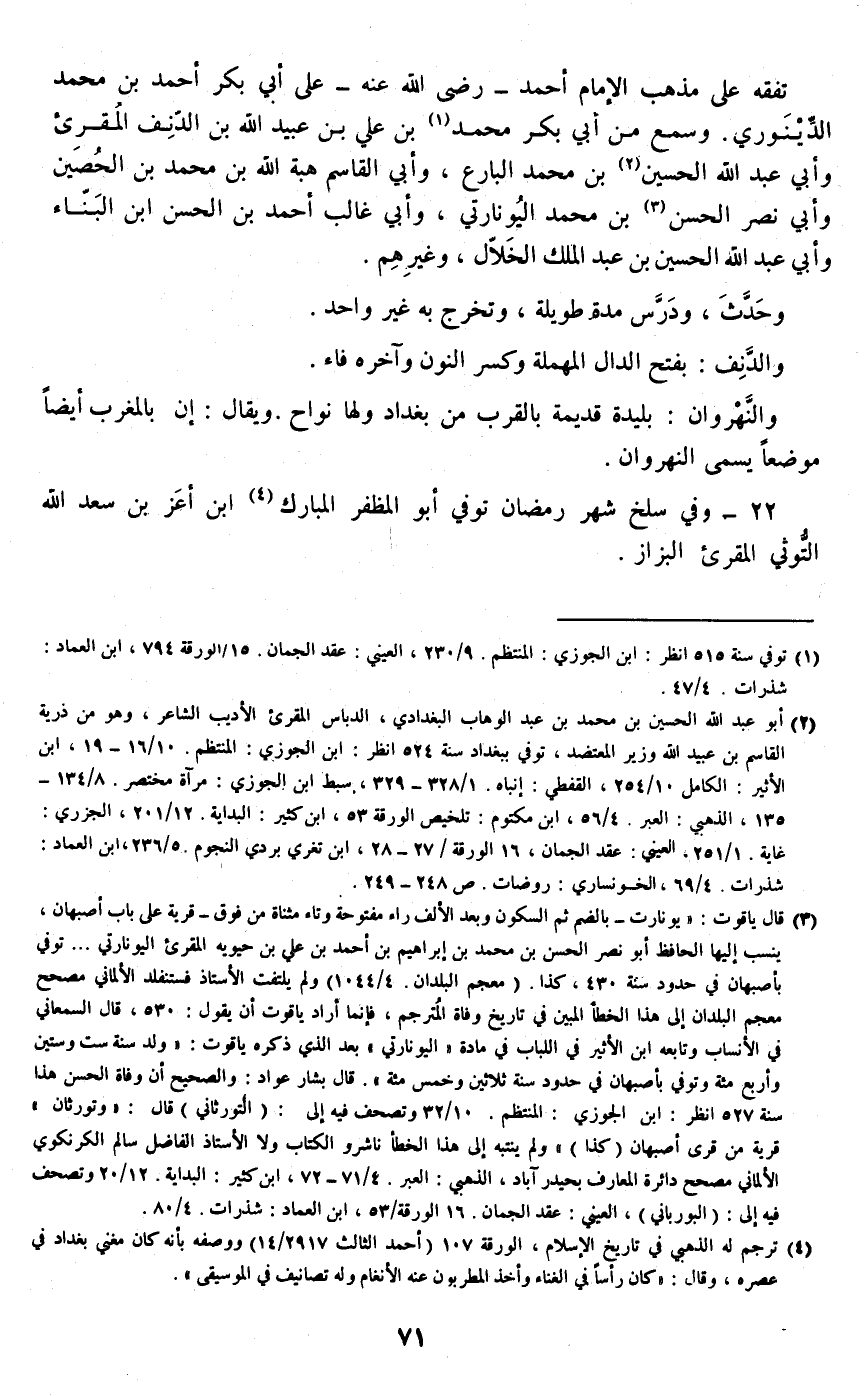 تفقه على مذهب الإمام أحمد ــ رضى الله عنه ــ على أبي بكر أحمد بن محمد
الدِّيْنَوري. وسمع من أبي بكر محمد(١) بن علي بن عبيد الله بن الدّنِف المُقرئ
وأبي عبد الله الحسين(٢) بن محمد البارع ، وأبي القاسم هبة الله بن محمد بن الحُصَين
وأبي نصر الحسن(٣) بن محمد اليُونارتي ، وأبي غالب أحمد بن الحسن ابن البَنّاء
وأبي عبد الله الحسين بن عبد الملك الخَلاّل ، وغيرِهِم .
وحَدَّثَ ، ودَرَّس مدة طويلة ، وتخرج به غير واحد .
والدَّنِف : بفتح الدال المهملة وكسر النون وآخره فاء .
والنَّهْروان : بليدة قديمة بالقرب من بغداد ولها نواح .ويقال : إن بالمغرب أيضاً
موضعاً يسمى النهروان .
٢٢ ــ وفي سلخ شهر رمضان توفي أبو المظفر المبارك(٤) ابن أعَز بن سعد الله
التُّوثي المقرئ البزاز .
(١) توفي سنة ٥١٥ انظر : ابن الجوزي : المنتظم . ٢٣٠/٩ ، العيني : عقد الجمان . ١٥/الورقة ٧٩٤ ، ابن العماد :
شذرات . ٤٧/٤ .
(٢) أبو عبد الله الحسين بن محمد بن عبد الوهاب البغدادي ، الدباس المقرئ الأديب الشاعر ، وهو من ذرية
القاسم بن عبيد الله وزير المعتضد ، توفي ببغداد سنة ٥٢٤ انظر : ابن الجوزي : المنتظم . ١٦/١٠ – ١٩ ، ابن
الأثير : الكامل ٢٥٤/١٠ ، القفطي : إنباه. ٣٢٨/١ – ٣٢٩ ، سبط ابن الجوزي : مرآة مختصر . ١٣٤/٨ –
١٣٥ ، الذهبي : العبر . ٥٦/٤ ، ابن مكتوم : تلخيص الورقة ٥٣ ، ابن كثير : البداية . ٢٠١/١٢ ، الجزري :
غاية . ٢٥١/١ ، العيني : عقد الجمان ، ١٦ الورقة / ٢٧ – ٢٨ ، ابن تغري بردي النجوم .٢٣٦/٥ ،ابن العماد :
شذرات . ٦٩/٤ ، الخونساري : روضات . ص ٢٤٨ – ٢٤٩ .
(٣) قال ياقوت : « يونارت – بالضم ثم السكون وبعد الألف راء مفتوحة وتاء مثناة من فوق – قرية على باب أصبهان ،
ينسب إليها الحافظ أبو نصر الحسن بن محمد بن إبراهيم بن أحمد بن علي بن حيويه المقرئ اليونارتي ... توفي
بأصبهان في حدود سنة ٤٣٠ ، كذا . ( معجم البلدان . ١٠٤٤/٤) ولم يلتفت الأستاذ فستنفلد الألماني مصحح
معجم البلدان إلى هذا الخطأ المبين في تاريخ وفاة المُترجم ، فإنما أراد ياقوت أن يقول : ٥٣٠ ، قال السمعاني
في الأنساب وتابعه ابن الأثير في اللباب في مادة « اليونارتي » بعد الذي ذكره ياقوت : « ولد سنة ست وستين
وأربع مئة وتوفي بأصبهان في حدود سنة ثلاثين وخمس مئة » . قال بشار عواد : والصحيح أن وفاة الحسن هذا
سنة ٥٢٧ انظر : ابن الجوزي : المنتظم . ٣٢/١٠ وتصحف فيه إلى : ( التُورثاني ) قال : « وتورثان »
قرية من قرى أصبهان ( كذا ) » ولم ينتبه إلى هذا الخطأ ناشرو الكتاب ولا الأستاذ الفاضل سالم الكرنكوي
الألماني مصحح دائرة المعارف بحيدر آباد ، الذهبي : العبر . ٧١/٤ – ٧٢ ، ابن كثير : البداية . ٢٠/١٢ وتصحف
فيه إلى : ( البورباني ) ، العيني : عقد الجمان . ١٦ الورقة/٥٣ ، ابن العماد : شذرات . ٨٠/٤ .
(٤) ترجم له الذهبي في تاريخ الإسلام ، الورقة ١٠٧ (أحمد الثالث ١٤/٢٩١٧) ووصفه بأنه كان مغني بغداد في
عصره ، وقال : «كان رأساً في الغناء وأخذ المطربون عنه الأنغام وله تصانيف في الموسيقى » .
٧١